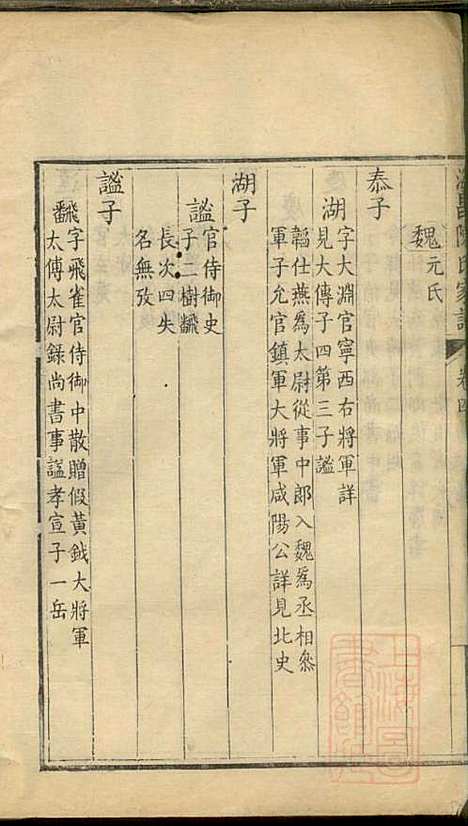 陳氏家譜 卷四
魏元氏
泰子
湖
字大淵官寧西右將軍詳
見大傳子四第三子謐
韜仕燕爲太尉從事中郎入魏爲丞相叅
軍子允官鎮軍大將軍咸陽公詳見北史
湖子
謐
官侍御史
子二樹飜
長次四失
名無攷
謐子
飜
字飛雀官侍御中散贈假黃鉞大將軍
太傅太尉錄尚書事謚孝宣子一岳